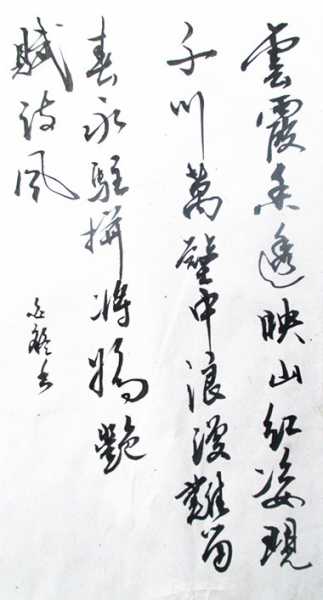 雲霞透映山紅姿現
千川萬壑中浪漫難留
春永駐拚將嬌艷
賦詩風
書